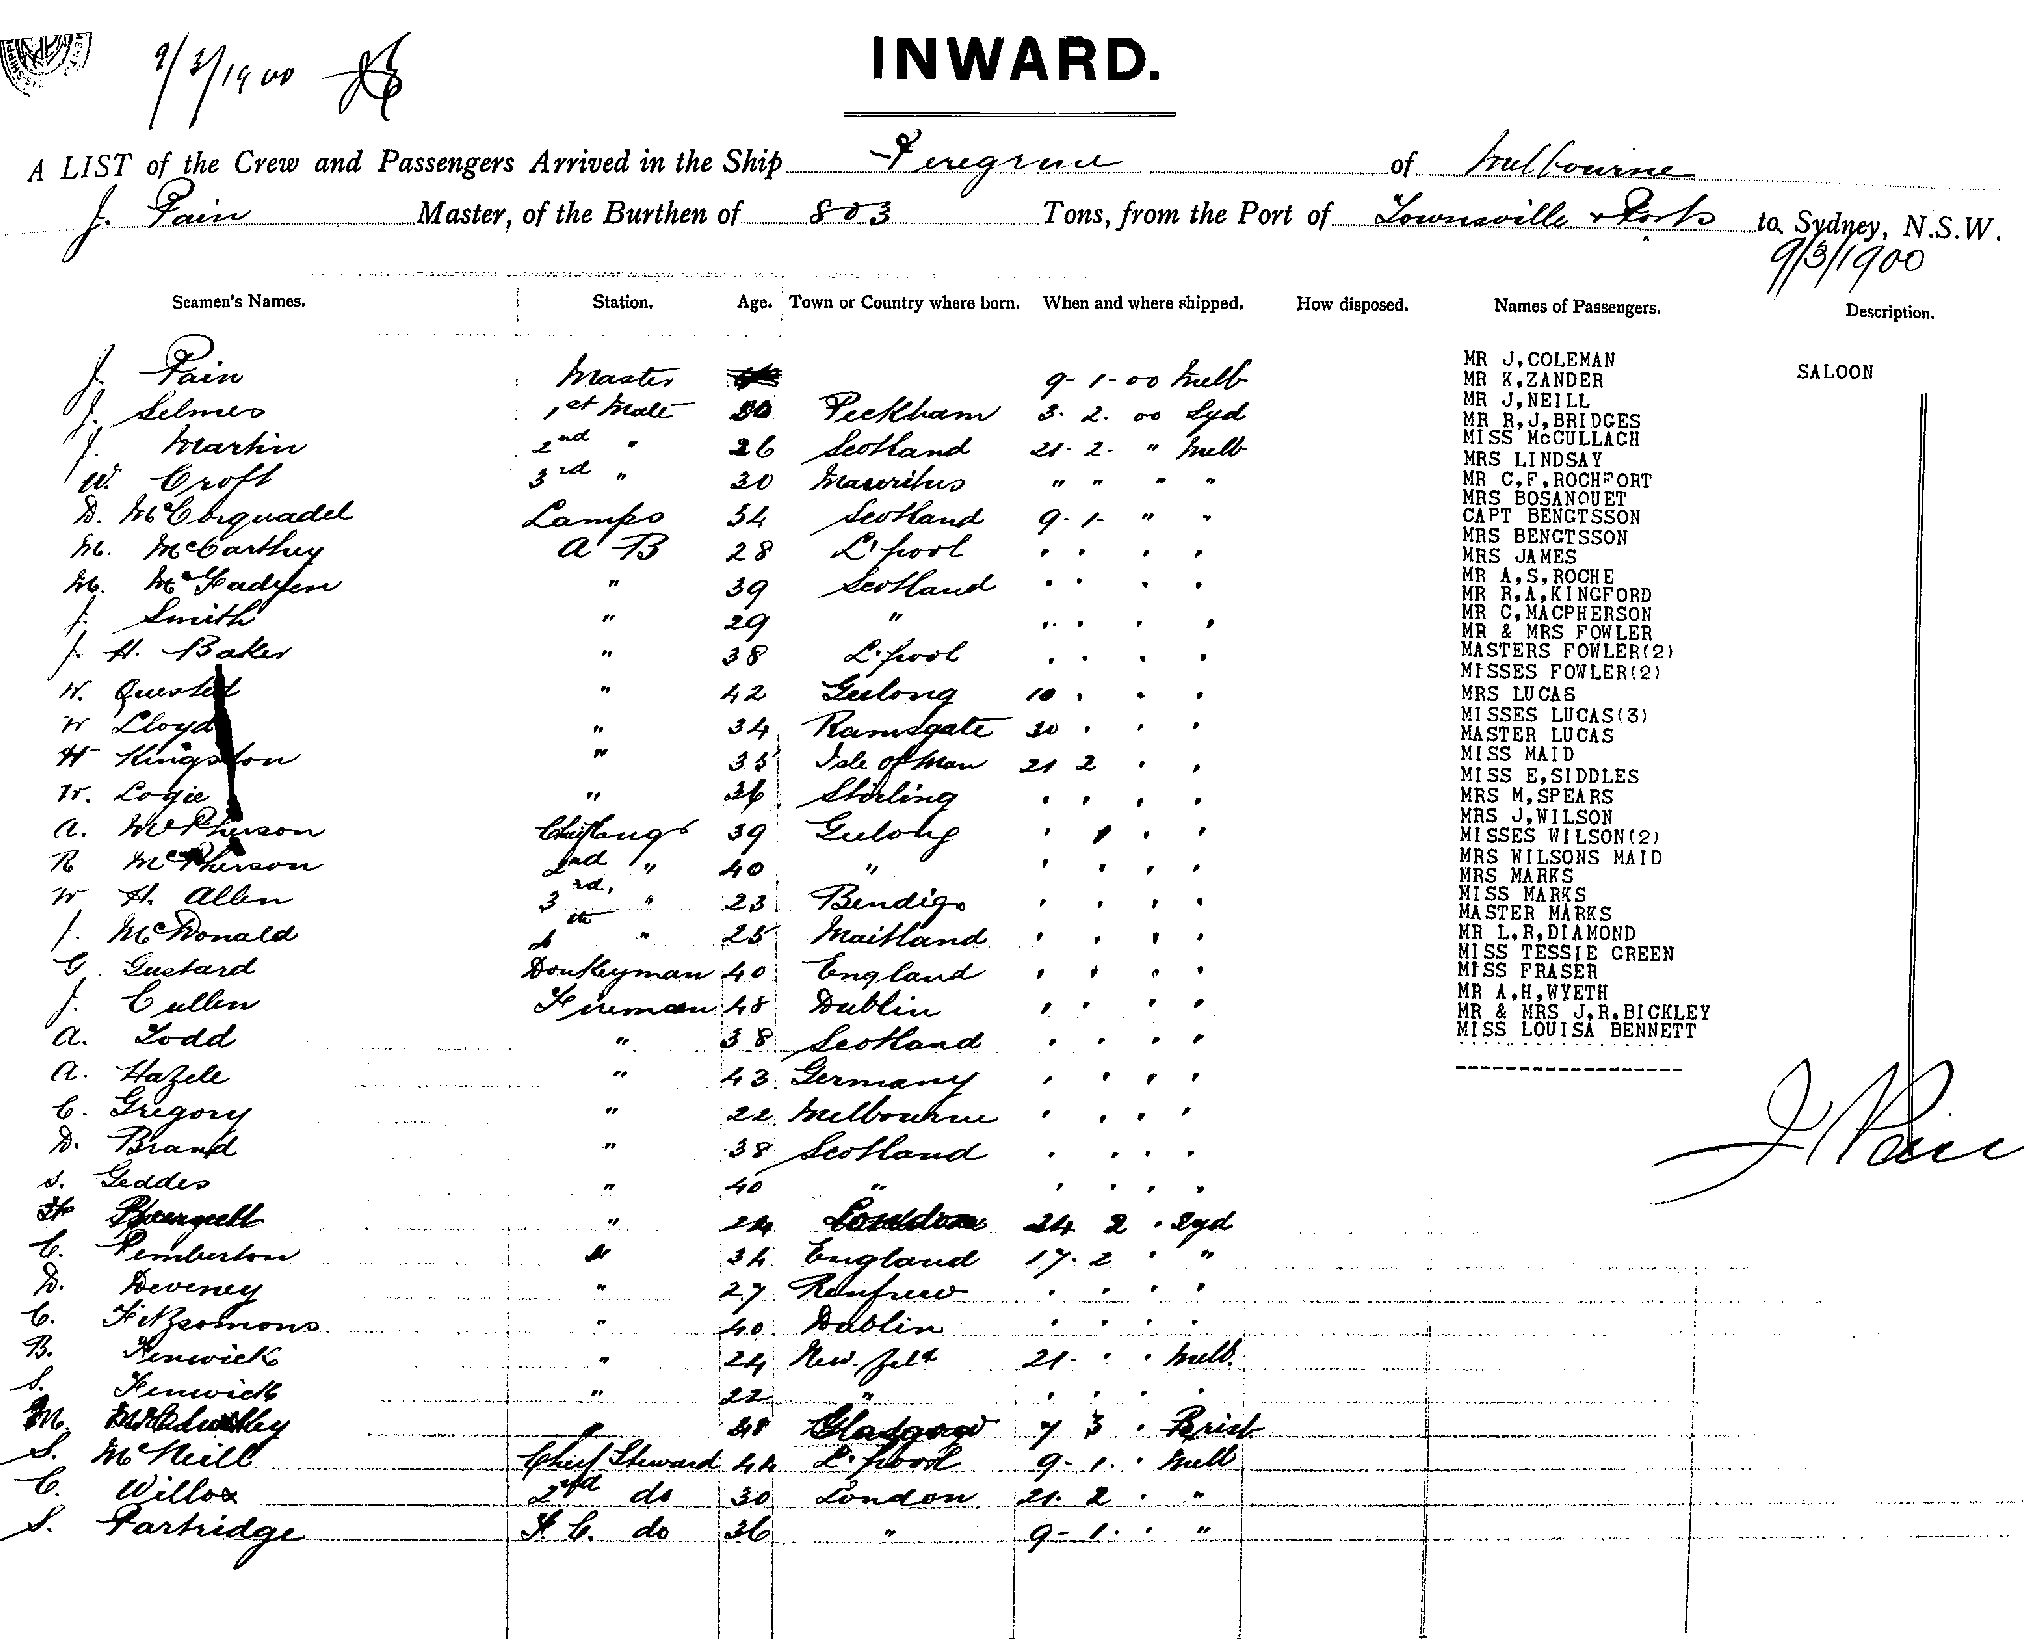 9/3/1900
INWARD.
A LIST of the Crew and Passengers Arrived in the Ship Peregrine of Melbourne
J. Pain Master, of the Burthen of 803 Tons, from the Port of Townsville & Ports to Sydney, N.S.W.
9/3/1900
Seamen's Names. Station. Age. Town or Country where born. When and where shipped. How disposed. Names of Passengers. Description.
J. Pain Master 9-1-00 Melb
J. Selmes 1st Mate 30 Peckham 3. 2. 00 Syd
J. Martin 2nd " 26 Scotland 21. 2. " Melb
W. Croft 3rd " 30 Mauritus " " " "
D. McCorquadel Lamps 34 Scotland 9-1- " "
M. McCarthey A B 28 L'pool " " " "
M. McFadyen " 39 Scotland " " " "
J. Smith " 29 " " " " "
J. H. Baker " 38 L'pool " " " "
W. Quested " 42 Geelong 10 " " "
W Lloyd " 34 Ramsgate 30 " " "
H Kingston " 35 Isle of Man 21 2 " "
W. Logie " 36 Stirling " " " "
A. McPherson Chief Engr 39 Geelong " " " "
R McPherson 2nd " 40 " " " " "
W H. Allen 3rd, " 23 Bendigo " " " "
J. McDonald 4th " 25 Maitland " " " "
G. Gustard Donkeyman 40 England " " " "
J. Cullen Fireman 48 Dublin " " " "
A. Todd " 38 Scotland " " " "
A. Hazele " 43 Germany " " " "
C. Gregory " 22 Melbourne " " " "
D. Brand " 38 Scotland " " " "
S. Geddes " 40 " " " " "
H " 24 London 24 2 " Syd
C. Pemberton " 34 England 17. 2 " "
D. Deveney " 27 Renfrew " " " "
C. Fitzsomons " 40 Dublin " " " "
B. Fenwick " 24 New. Zeld 21- " " Melb.
S. Fenwick " 22 " " " " "
M. " 48 Glasgow 7 3 " Brisb
S. McNeill Chief Steward 44 L'pool 9-1. " Melb
C. Willox 2nd do 30 London 21. 2 " "
S. Partridge F. C. do 36 " 9-1. " "
MR J,COLEMAN SALOON
MR K,ZANDER
MR J,NEILL
MR R,J,BRIDGES
MISS McCULLAGH
MRS LINDSAY
MR C,F,ROCHFORT
MRS BOSANQUET
CAPT BENGTSSON
MRS BENGTSSON
MRS JAMES
MR A,S,ROCHE
MR R,A,KINGFORD
MR C,MACPHERSON
MR & MRS FOWLER
MASTERS FOWLER(2)
MISSES FOWLER(2)
MRS LUCAS
MISSES LUCAS(3)
MASTER LUCAS
MISS MAID
MISS E,SIDDLES
MRS M,SPEARS
MRS J,WILSON
MISSES WILSON(2)
MRS WILSONS MAID
MRS MARKS
MISS MARKS
MASTER MARKS
MR L,R,DIAMOND
MISS TESSIE GREEN
MISS FRASER
MR A,H,WYETH
MR & MRS J,R.BICKLEY
MISS LOUISA BENNETT
J Pain